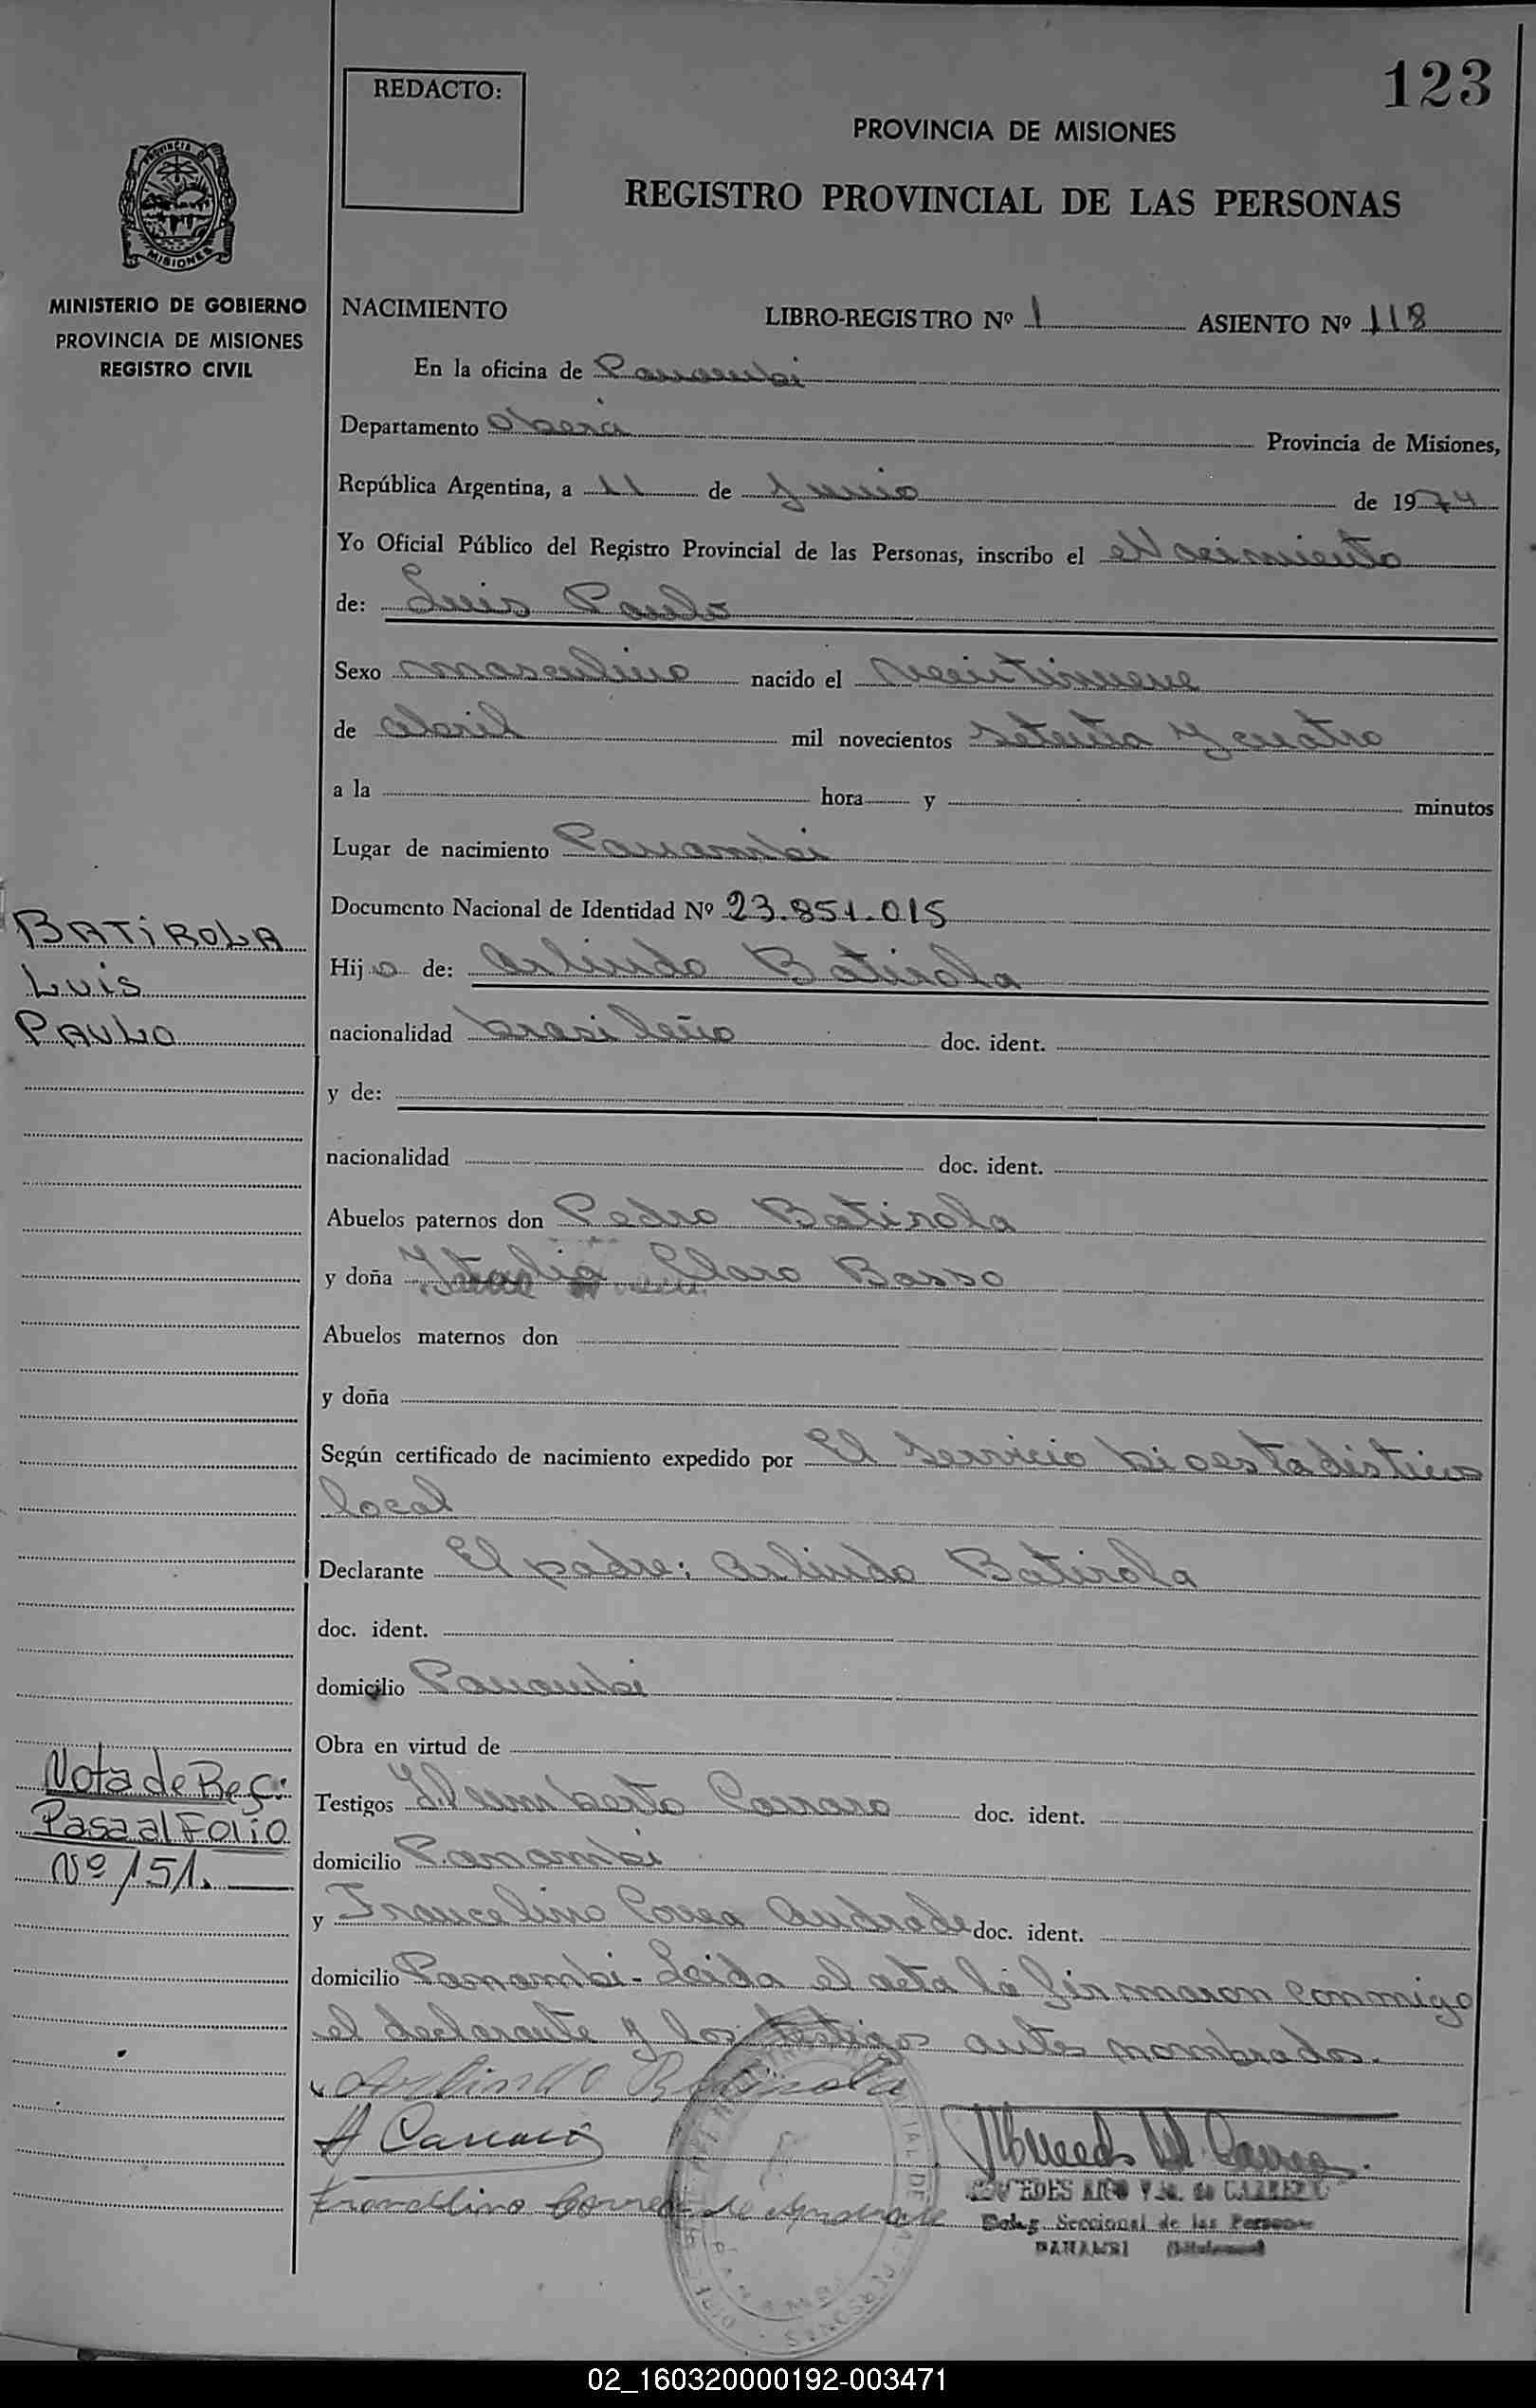 123
REDACTO:
PROVINCIA DE MISIONES
REGISTRO PROVINCIAL DE LAS PERSONAS
PROVINCIA DE
MISIONES
MINISTERIO DE GOBIERNO
PROVINCIA DE MISIONES
REGISTRO CIVIL
NACIMIENTO LIBRO-REGISTRO Nº 1 ASIENTO Nº 118
En la oficina de Panambi
Departamento Oberá Provincia de Misiones,
República Argentina, a 11 de Junio de 1974
Yo Oficial Público del Registro Provincial de las Personas, inscribo el Nacimiento
de: Luis Paulo
Sexo masculino nacido el veintinueve
de abril mil novecientos setenta y cuatro
a la hora y minutos
Lugar de nacimiento Panambi
Documento Nacional de Identidad Nº 23.851.015
BATIROLA
LUIS
PAULO
Hijo de: Arlindo Batirola
nacionalidad brasileño doc. ident.
y de:
nacionalidad doc. ident.
Abuelos paternos don Pedro Batirola
y doña Italia Claro Basso
Abuelos maternos don
y doña
Según certificado de nacimiento expedido por El Servicio bioestadístico
local
Declarante El padre: Arlindo Batirola
doc. ident.
domicilio Panambi
Obra en virtud de
Nota de Rec:
Pasa al Folio
Nº 151.
Testigos Humberto Carraro doc. ident.
domicilio Panambi
y Francelino Correa Andrade doc. ident.
domicilio Panambi - Leida el acta la firmaron conmigo
el declarante y los testigos antes nombrados.
Arlindo Batirola
H Carraro
Francelino Correa de Andrade
Deleg. Seccional de las Personas
PANAMBI
02_160320000192-003471